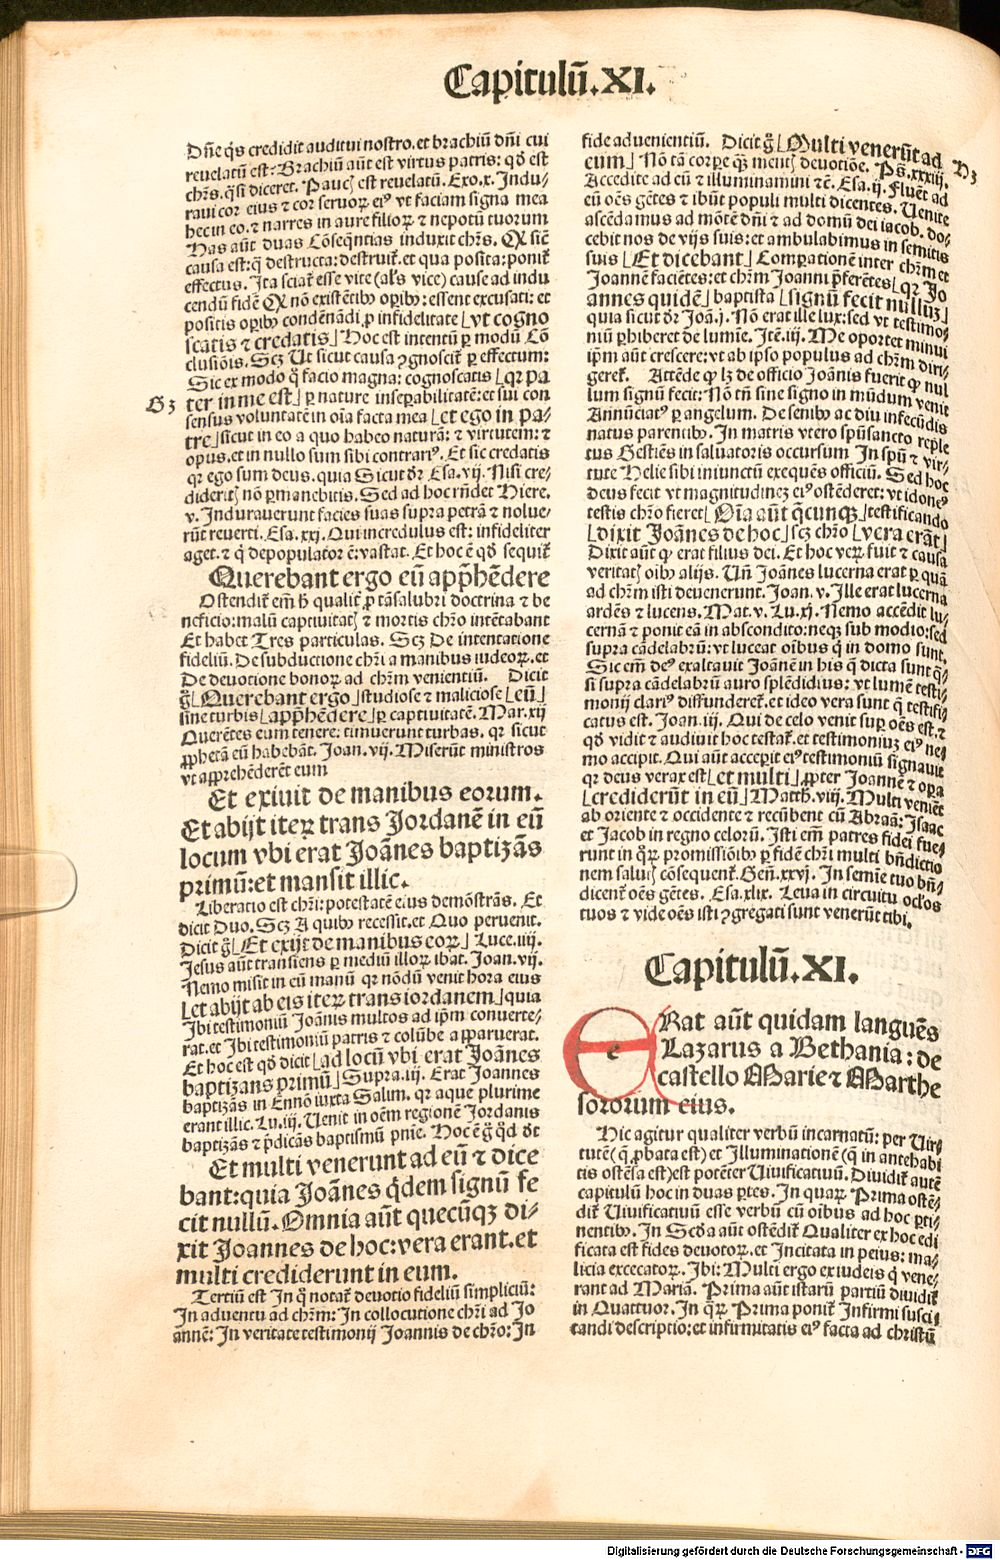 Capitulū.XI.
Dn̄e q̇s credidit auditui nostro.et brachiū dn̄i cui
reuelatū est? Brachiū aūt est virtus patris: qḋ est
chr̄s. q̇si diceret. Paucꝭ est reuelatū. Exo.x. Indu⸗
raui cor eius ⁊ cor seruoꝝ eiꝰ vt faciam signa mea
hec in eo. ⁊ narres in aure filioꝝ ⁊ nepotū tuorum
Has aūt duas Cōseq̄ntias induxit chr̄s. Ꝙ sic̄
causa est: q̄ destructa: destruit̄. et qua posita: ponit̄
effectus. Ita sciat̄ esse vite (al's vice) cause ad indu
cendū fidē Ꝙ nō existētibꝰ oꝑibꝰ: essent excusati: et
positis oꝑibꝰ condēnādi ꝓ infidelitate ⌊vt cogno
scatis ⁊ credatis⌋ Hoc est intentū ꝑ modū Cō
clusiōis. Scꝫ Ut sicut causa ꝯgnoscit̄ ꝑ effectum:
Sic ex modo q̄ facio magna: cognoscatis ⌊qꝛ pa
G3 ter in me est⌋ ꝑ nature inseꝑabilitatē: et sui con
sensus voluntatē in oīa facta mea ⌊et ego in pa⸗
tre⌋ sicut in eo a quo habeo naturā: ⁊ virtutem: ⁊
opus. et in nullo sum sibi contrariꝰ. Et sic credatis
qꝛ ego sum deus. quia Sicut dr̄ Esa.vij. Nisi cre⸗
diderit̄ nō ꝑmanebitis. Sed ad hoc rn̄det Hiere.
v. Indurauerunt facies suas supra petrā ⁊ nolue⸗
rūt reuerti. Esa.xxj. Qui incredulus est: infideliter
aget. ⁊ q̇ depopulator ē: vastat. Et hoc ē qḋ sequit̄
Querebant ergo eū app̄hēdere
Ostendit̄ em̄ ħ qualit̄ ꝓ tā salubri doctrina ⁊ be
neficio: malū captiuitatꝭ ⁊ mortis chr̄o intētabant
Et habet Tres particulas. Scꝫ De intentatione
fidelium. De subductione chr̄i a manibus iudeoꝝ. et
De deuotione bonoꝝ ad chr̄m venientiū. Dicit
g̊ ⌊Querebant ergo⌋ studiose ⁊ maliciose ⌊eū⌋
sine turbis ⌊app̄hēdere⌋ ꝑ captiuitatē. Mar.xij
Querētes eum tenere: timuerunt turbas. qꝛ sicut
ꝓphetā eū habebāt. Joan.vij. Miserūt ministros
vt apprehēderēt eum
Et exiuit de manibus eorum.
Et abijt iteꝝ trans Jordanē in eū
locum vbi erat Joānes baptizās
primū: et mansit illic.
Liberatio est chr̄i: potestatē eius demōstrās. Et
dicit Duo. Scꝫ A quibꝰ recessit. et Quo peruenit.
Dicit g̊ ⌊Et exijt de manibus eoꝝ⌋ Luce.iiij.
Jesus aūt transiens ꝑ mediū illoꝝ ibat. Joan.vij.
Nemo misit in eū manū qꝛ nōdū venit hora eius
⌊et abijt ab eis iteꝝ trans iordanem⌋ quia
Ibi testimoniū Joānis multos ad ip̄m conuerte⸗
rat. et Ibi testimoniū patris ⁊ colūbe apparuerat.
Et hoc est qḋ dicit ⌊ad locū vbi erat Joānes
baptizans primū⌋ Supra.iij. Erat Joannes
baptizās in Ennō iuxta Salim. qꝛ aque plurime
erant illic. Lu.iij. Uenit in oēm regionē Jordanis
baptizās ⁊ p̄dicās baptismū pnīe. Hoc ē g̊ qḋ dr̄
Et multi venerunt ad eū ⁊ dice
bant: quia Joānes q̇dem signū fe
cit nullū. Omnia aūt quecūqꝫ di⸗
xit Joannes de hoc: vera erant. et
multi crediderunt in eum.
Tertiū est In q̄ notat̄ deuotio fideliū simpliciū:
In aduentu ad chr̄m: In collocutione chr̄i ad Jo
annē: In veritate testimonij Joannis de chr̄o: In
fide aduenientiū. Dicit g̊ ⌊Multi venerūt ad
eum⌋ Nō tā corꝑe q̄ꝫ mentꝭ deuotiōe. Ps̄.xxxiij. D3
Accedite ad eū ⁊ illuminamini ⁊c̄. Esa.ij. Fluēt ad
eū oēs gētes ⁊ ibūt populi multi dicentes. Uenite
ascēdamus ad mōtē dn̄i ⁊ ad domū dei iacob. do⸗
cebit nos de vijs suis: et ambulabimus in semitis
suis ⌊Et dicebant⌋ Comparationē inter chr̄m et
Joannē faciētes: et chr̄m Joanni p̄ferētes ⌊qꝛ Jo
annes quidē⌋ baptista ⌊signū fecit nulluꝫ⌋
quia sicut dr̄ Joā.j. Nō erat ille lux: sed vt testimo⸗
niū ꝑhiberet de lumīe. Itē.iij. Me oportet minui
ip̄m aūt crescere: vt ab ipso populus ad chr̄m diri⸗
geret̄. Attēde ꝙ lꝫ de officio Joānis fuerit ꝙ nul
lum signū fecit: Nō tn̄ sine signo in mūdum venit
Annūciatꝰ ꝑ angelum. De senibꝰ ac diu infecūdis
natus parentibꝰ. In matris vtero sp̄usancto reple
tus Gestiēs in saluatoris occursum In sp̄u ⁊ vir⸗
tute Helie sibi iniunctū exequēs officiū. Sed hoc
deus fecit vt magnitudineꝫ eiꝰ ostēderet: vt idoneꝰ
testis chr̄o fieret ⌊Oīa aūt q̄cunqꝫ⌋ testificando
⌊dixit Joānes de hoc⌋ scꝫ chr̄o ⌊vera erāt⌋
Dixit aūt ꝙ erat filius dei. Et hoc veꝝ fuit ⁊ causa
veritatꝭ oībꝰ alijs. Un̄ Joānes lucerna erat ꝑ quā
ad chr̄m isti deuenerunt. Joan.v. Ille erat lucerna
ardēs ⁊ lucens. Mat.v. Lu.xj. Nemo accēdit lu⸗
cernā ⁊ ponit eā in abscondito: neqꝫ sub modio: sed
supra cādelabrū: vt luceat oībus q̇ in domo sunt.
Sic em̄ deꝰ exaltauit Joānē in his q̄ dicta sunt q̄⸗
si supra cādelabrū auro splēdidius: vt lumē testi⸗
monij clariꝰ diffunderet̄. et ideo vera sunt q̄ testifi⸗
catus est. Joan.iij. Qui de celo venit suꝑ oēs est. ⁊
qḋ vidit ⁊ audiuit hoc testat̄. et testimoniuꝫ eiꝰ ne⸗
mo accipit. Qui aūt acceꝑit eiꝰ testimoniū signauit
qꝛ deus verax est ⌊et multi⌋ ꝓpter Joannē ⁊ oꝑa
⌊crediderūt in eū⌋ Matth̄.viij. Multi veniēt
ab oriente ⁊ occidente ⁊ recūbent cū Abraā: Isaac
et Jacob in regno celorū. Isti em̄ patres fidei fue⸗
runt in q̄ꝝ promissiōibꝰ ꝑ fidē chr̄i multi bn̄dictio
nem salutꝭ cōsequent̄. Gen̄.xxvj. In semīe tuo bn̄⸗
dicent̄ oēs gētes. Esa.xlix. Leua in circuitu oc̄los
tuos ⁊ vide oēs isti ꝯgregati sunt venerūt tibi.
Capitulū.XI.
ERat aūt quidam languēs
Lazarus a Bethania: de
castello Marie ⁊ Marthe
sororum eius.
Hic agitur qualiter verbū incarnatū: per Uir⸗
tutē (q̄ ꝓbata est) et Illuminationē (q̄ in antehabi
tis ostēsa est) est potēter Uiuificatiuū. Diuidit̄ autē
capitulū hoc in duas ꝑtes. In quaꝝ Prima ostē⸗
dit̄ Uiuificatiuū esse verbū cū oībus ad hoc ꝑti⸗
nentibꝰ. In Scḋa aūt ostēdit̄ Qualiter ex hoc edi
ficata est fides deuotoꝝ. et Incitata in peius: ma⸗
licia excecatoꝝ. Ibi: Multi ergo ex iudeis q̇ vene⸗
rant ad Mariā. Prima aūt istarū partiū diuidit̄
in Quattuor. In q̄ꝝ Prima ponit̄ Infirmi susci⸗
tandi descriptio: et infirmitatis eiꝰ facta ad christū
Digitalisierung gefördert durch die Deutsche Forschungsgemeinschaft - DFG